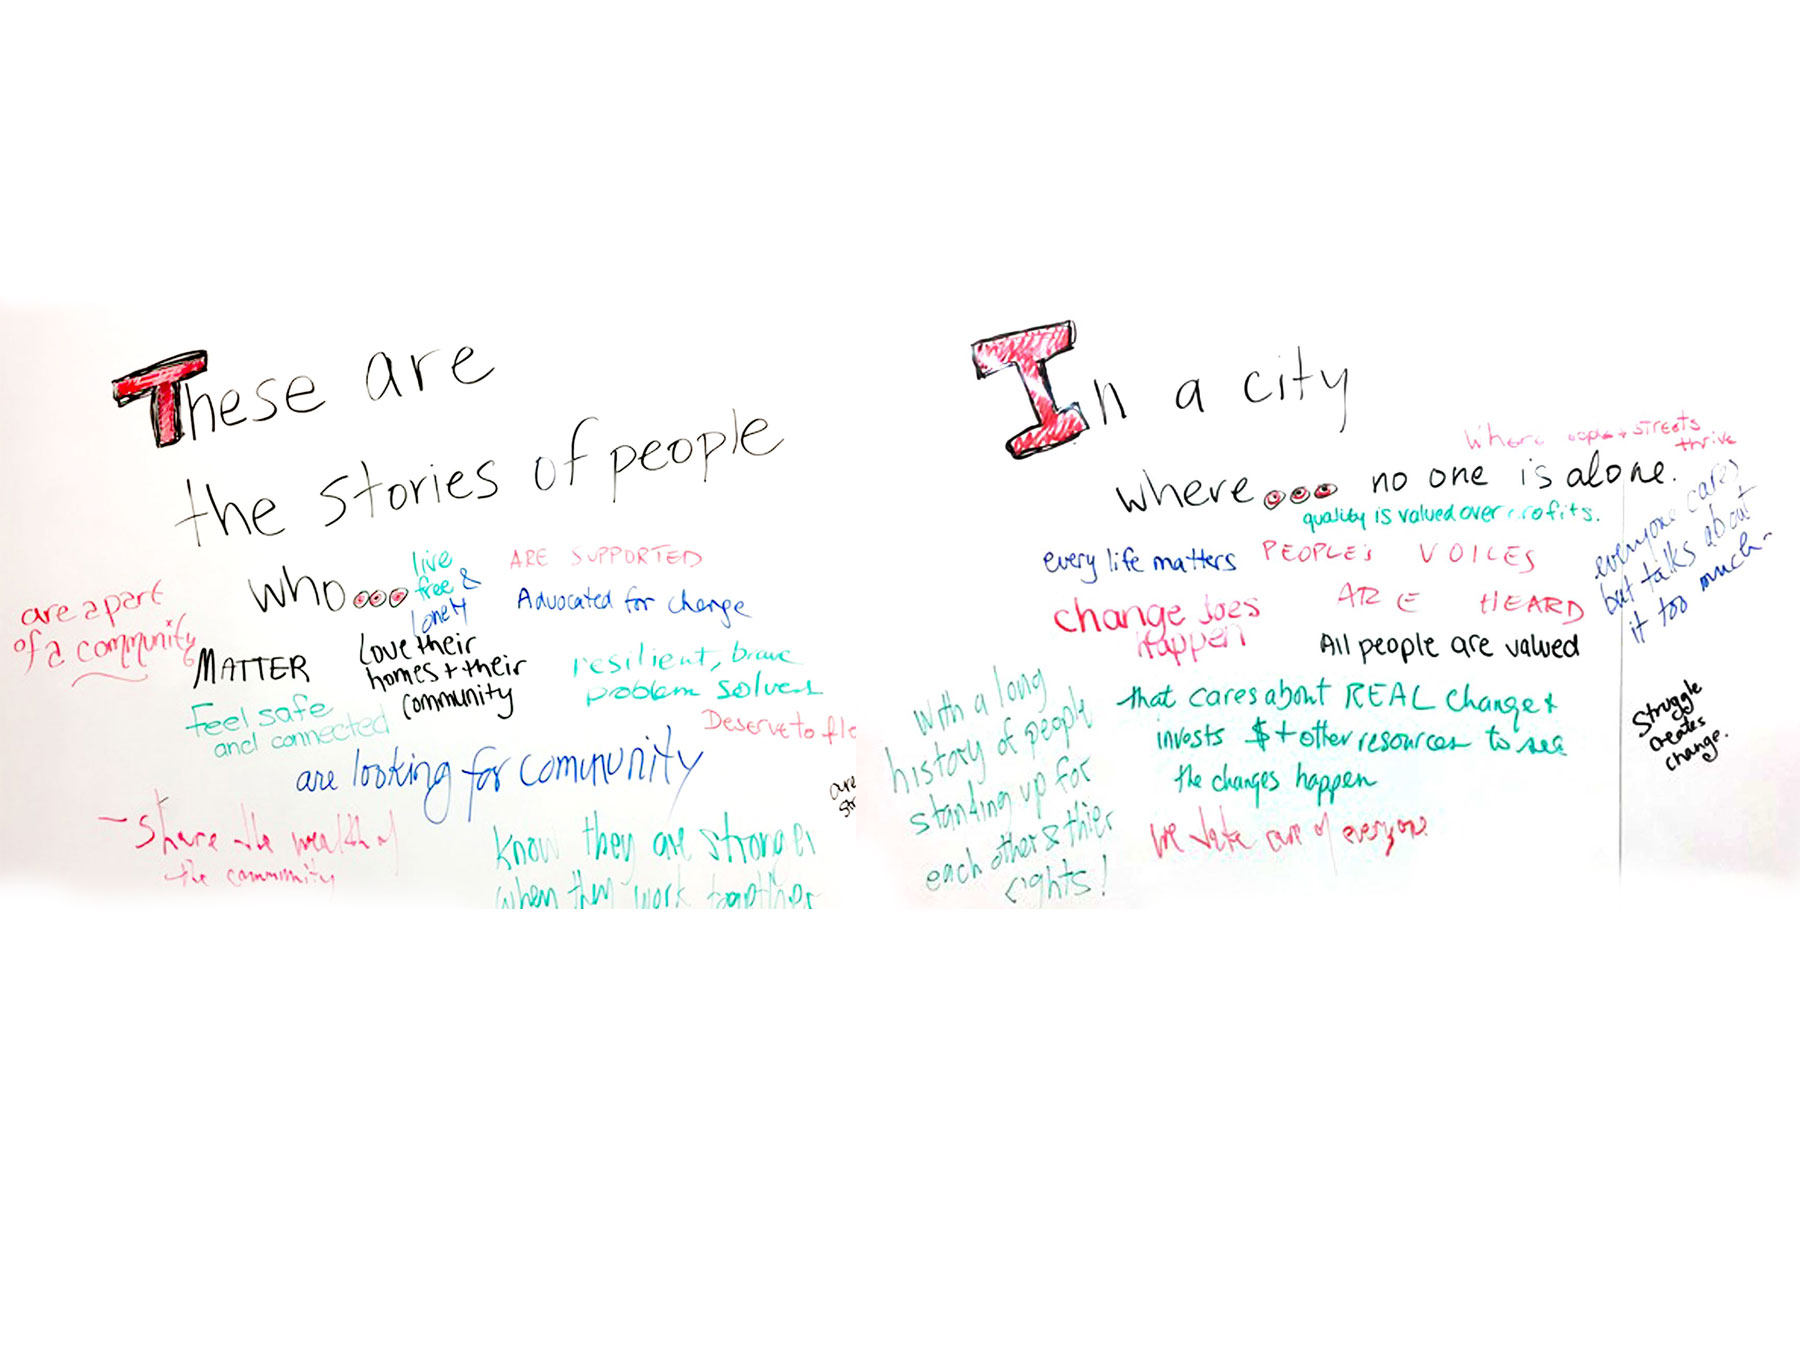 These are
the stories of people
who...
live
free &
lonely
ARE SUPPORTED
Advocated for change
are a part
of a community
MATTER
Love their
homes + their
community
resilient, brave
problem solvers
Feel safe
and connected
Deserve to
are looking for community
are
- Share the wealth of
the community
Know they are stronger
when they work together
In a city
where... no one is alone.
Where + STREETS
thrive
quality is valued over profits.
everyone cares
but talks about
it too much.
every life matters
PEOPLE'S VOICES
ARE HEARD
change does
Happen
All people are valued
with a long
history of people
standing up for
each other & thier
rights!
that cares about REAL Change +
invests $ + other resources to see
the changes happen
We take care of everyone
Struggle
creates
change.